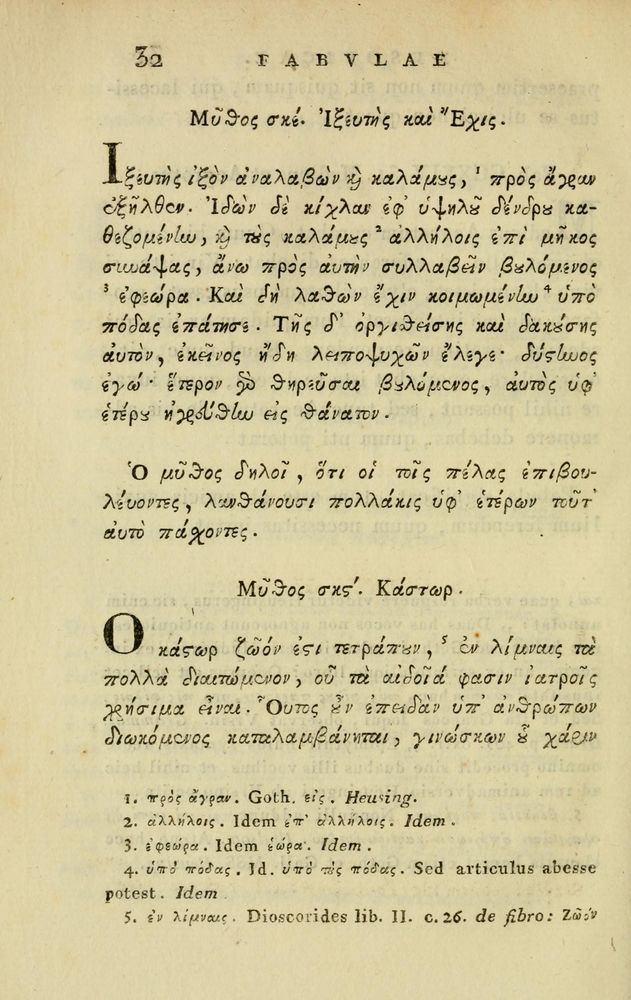 32 FABVLAE
Μῦθος σκέ. Ἰξευτὴς καὶ Ἔχις.
Ἰξευτὴς ἰξὸν ἀναλαβὼν ϗ καλάμȣς, ¹ πρὸς ἄγραν
ἐξῆλθεν. Ἰδὼν δὲ κίχλαν ἐφ' ὑψηλȣ͂ δένδρȣ κα-
θεζομένην, ϗ τὰς καλάμȣς ² ἀλλήλοις ἐπὶ μῆκος
συνάψας, ἄνω πρὸς αὐτὴν συλλαβεῖν βȣλόμενος
³ ἐφεώρα. Καὶ δὴ λαθὼν ἔχιν κοιμωμένην ⁴ ὑπὸ
πόδας ἐπάτησε. Τῆς δ' ὀργιθείσης καὶ δακȣ́σης
αὐτὸν, ἐκεῖνος ἤδη λειποψυχῶν ἔλεγε· δύςηνος
ἐγώ· ἕτερον γὰρ θηρεῦσαι βȣλόμενος, αὐτὸς ὑφ'
ἑτέρȣ ἠγρεύθην εἰς θάνατον.
Ὁ μῦθος δηλοῖ, ὅτι οἱ τοῖς πέλας ἐπιβου-
λέυοντες, λανθάνουσι πολλάκις ὑφ' ἑτέρων τοῦτ'
αὐτὸ πάσχοντες.
Μῦθος σκϛ'. Κάστωρ.
Ὁ κάϛωρ ζῶόν ἐϛι τετράπȣν, ⁵ ἐν λίμναις τὰ
πολλὰ διαιτώμενον, οὗ τὰ αἰδοῖά φασιν ἰατροῖς
χρήσιμα εἶναι. Ὅυτος ȣ͂ν ἐπειδὰν ὑπ' ἀνθρώπων
διωκόμενος καταλαμβάνηται, γινώσκων ȣ͗ χάριν
1. πρὸς ἄγραν. Goth. εἰς. Heusing.
2. ἀλλήλοις. Idem ἐπ' ἀλλήλοις. Idem.
3. ἐφεώρα. Idem ἑώρα. Idem.
4. ὑπὸ πόδας. Id. ὑπὸ τὰς πόδας. Sed articulus abesse
potest. Idem
5. ἐν λίμναις. Dioscorides lib. II. c. 26. de fibro: Ζῶόν